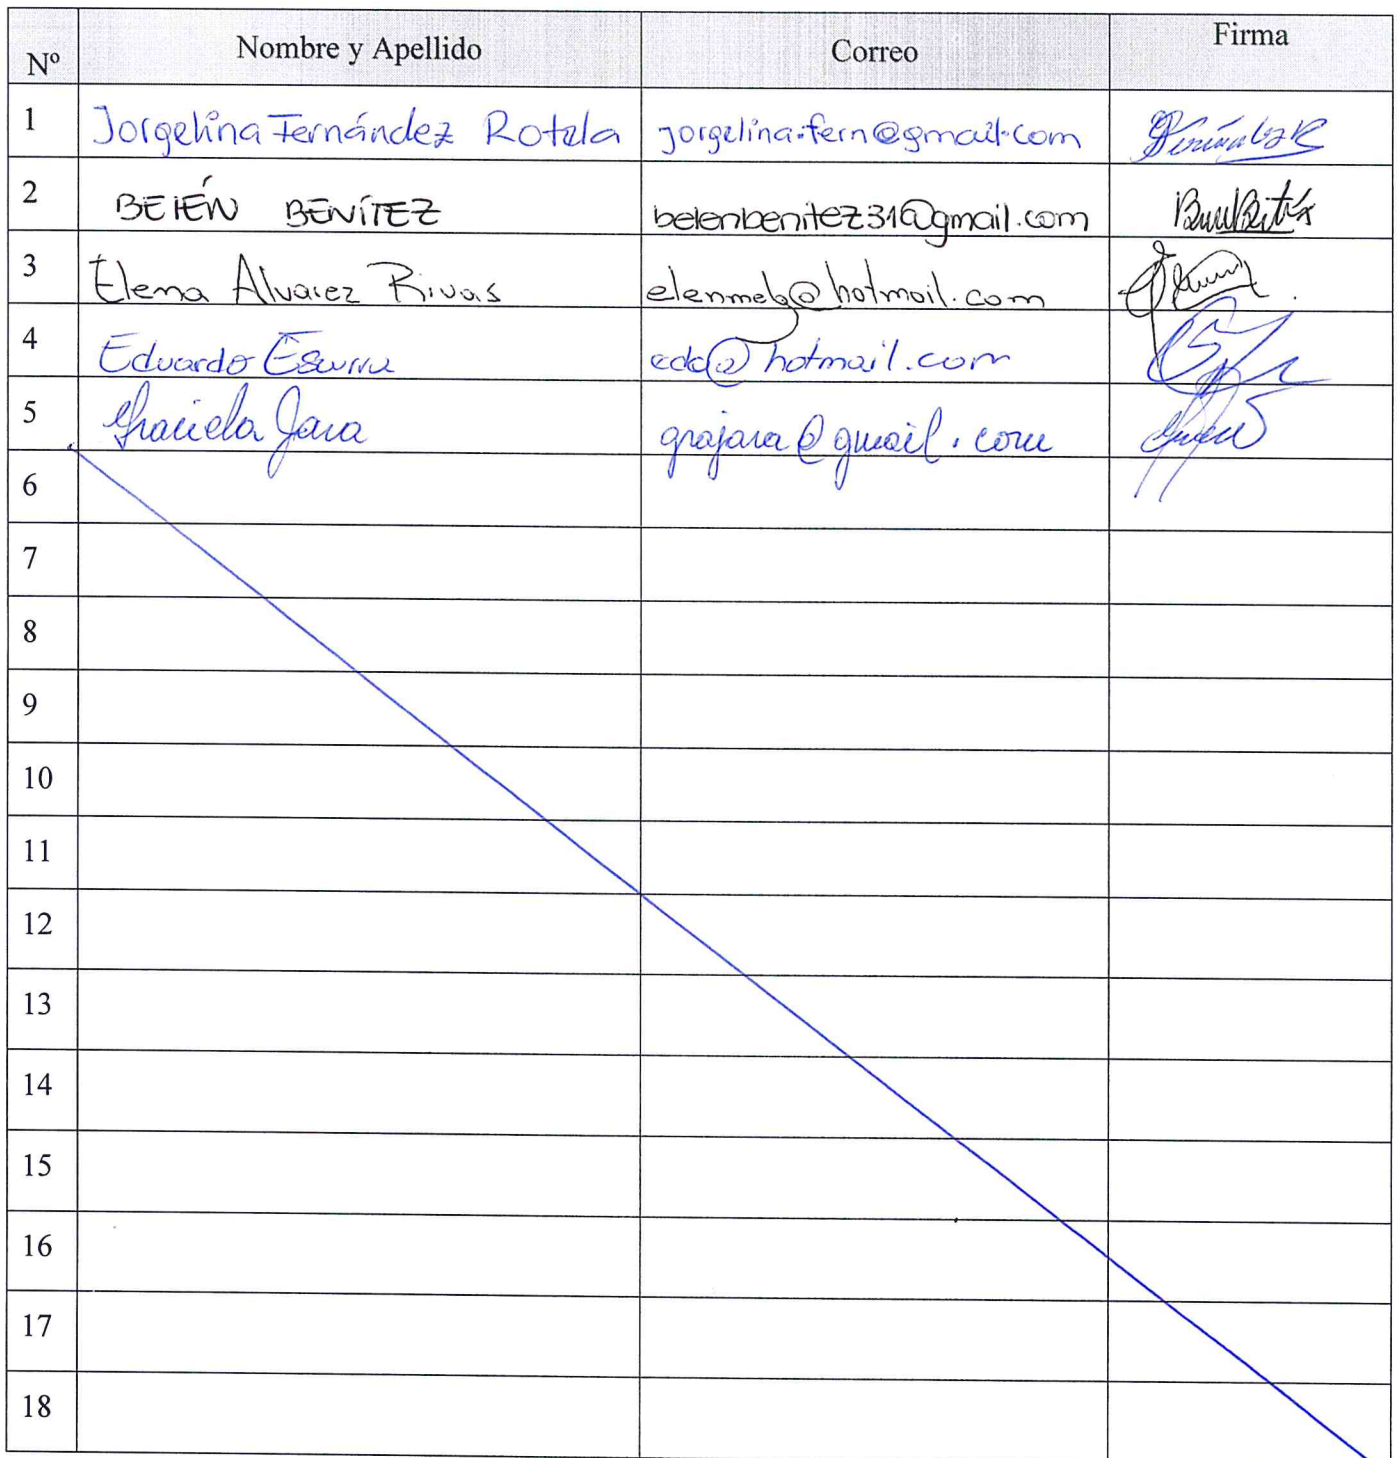 Nº Nombre y Apellido Correo Firma
1 Jorgelina Fernández Rotela jorgelina.fern@gmail.com
2 BELÉN BENÍTEZ belenbenitez31@gmail.com
3 Elena Alvarez Rivas elenmelg@hotmail.com
4 Eduardo @hotmail.com
5 Graciela Jara grajara@gmail.com
6
7
8
9
10
11
12
13
14
15
16
17
18